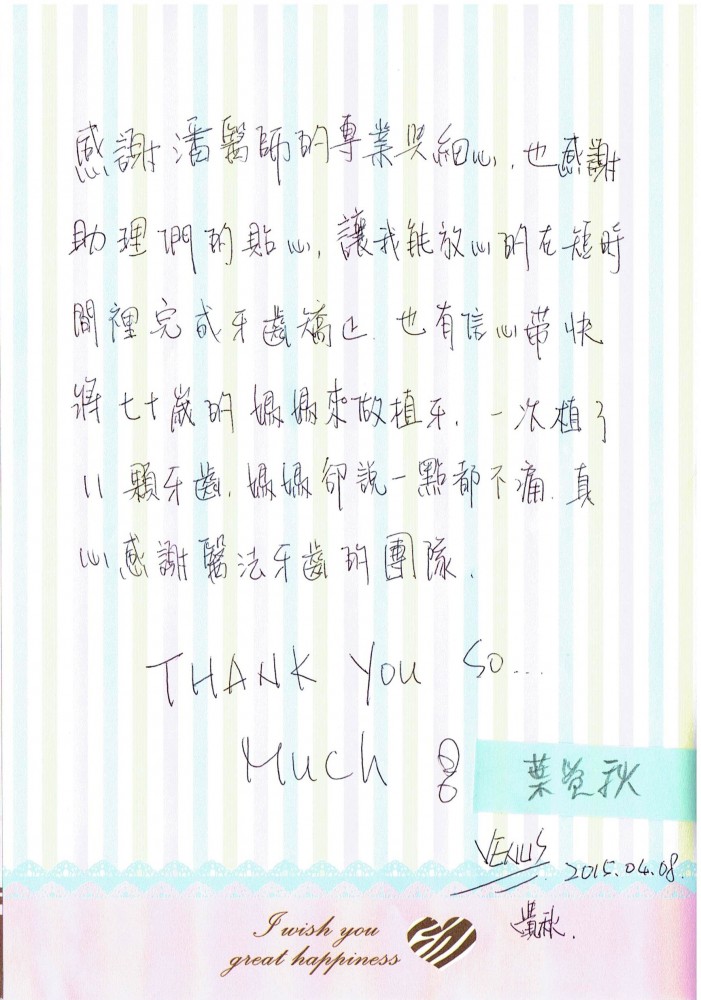 感謝潘醫師的專業與細心,也感謝
助理們的貼心,讓我能放心的在短時
間裡完成牙齒矯正.也有信心帶快
將七十歲的媽媽來做植牙.一次植了
11顆牙齒.媽媽卻說一點都不痛.真
心感謝醫法牙齒的團隊.
THANK YOU SO...
Much
葉 秋
VENUS
2015.04.08.
秋.
I wish you
great happiness